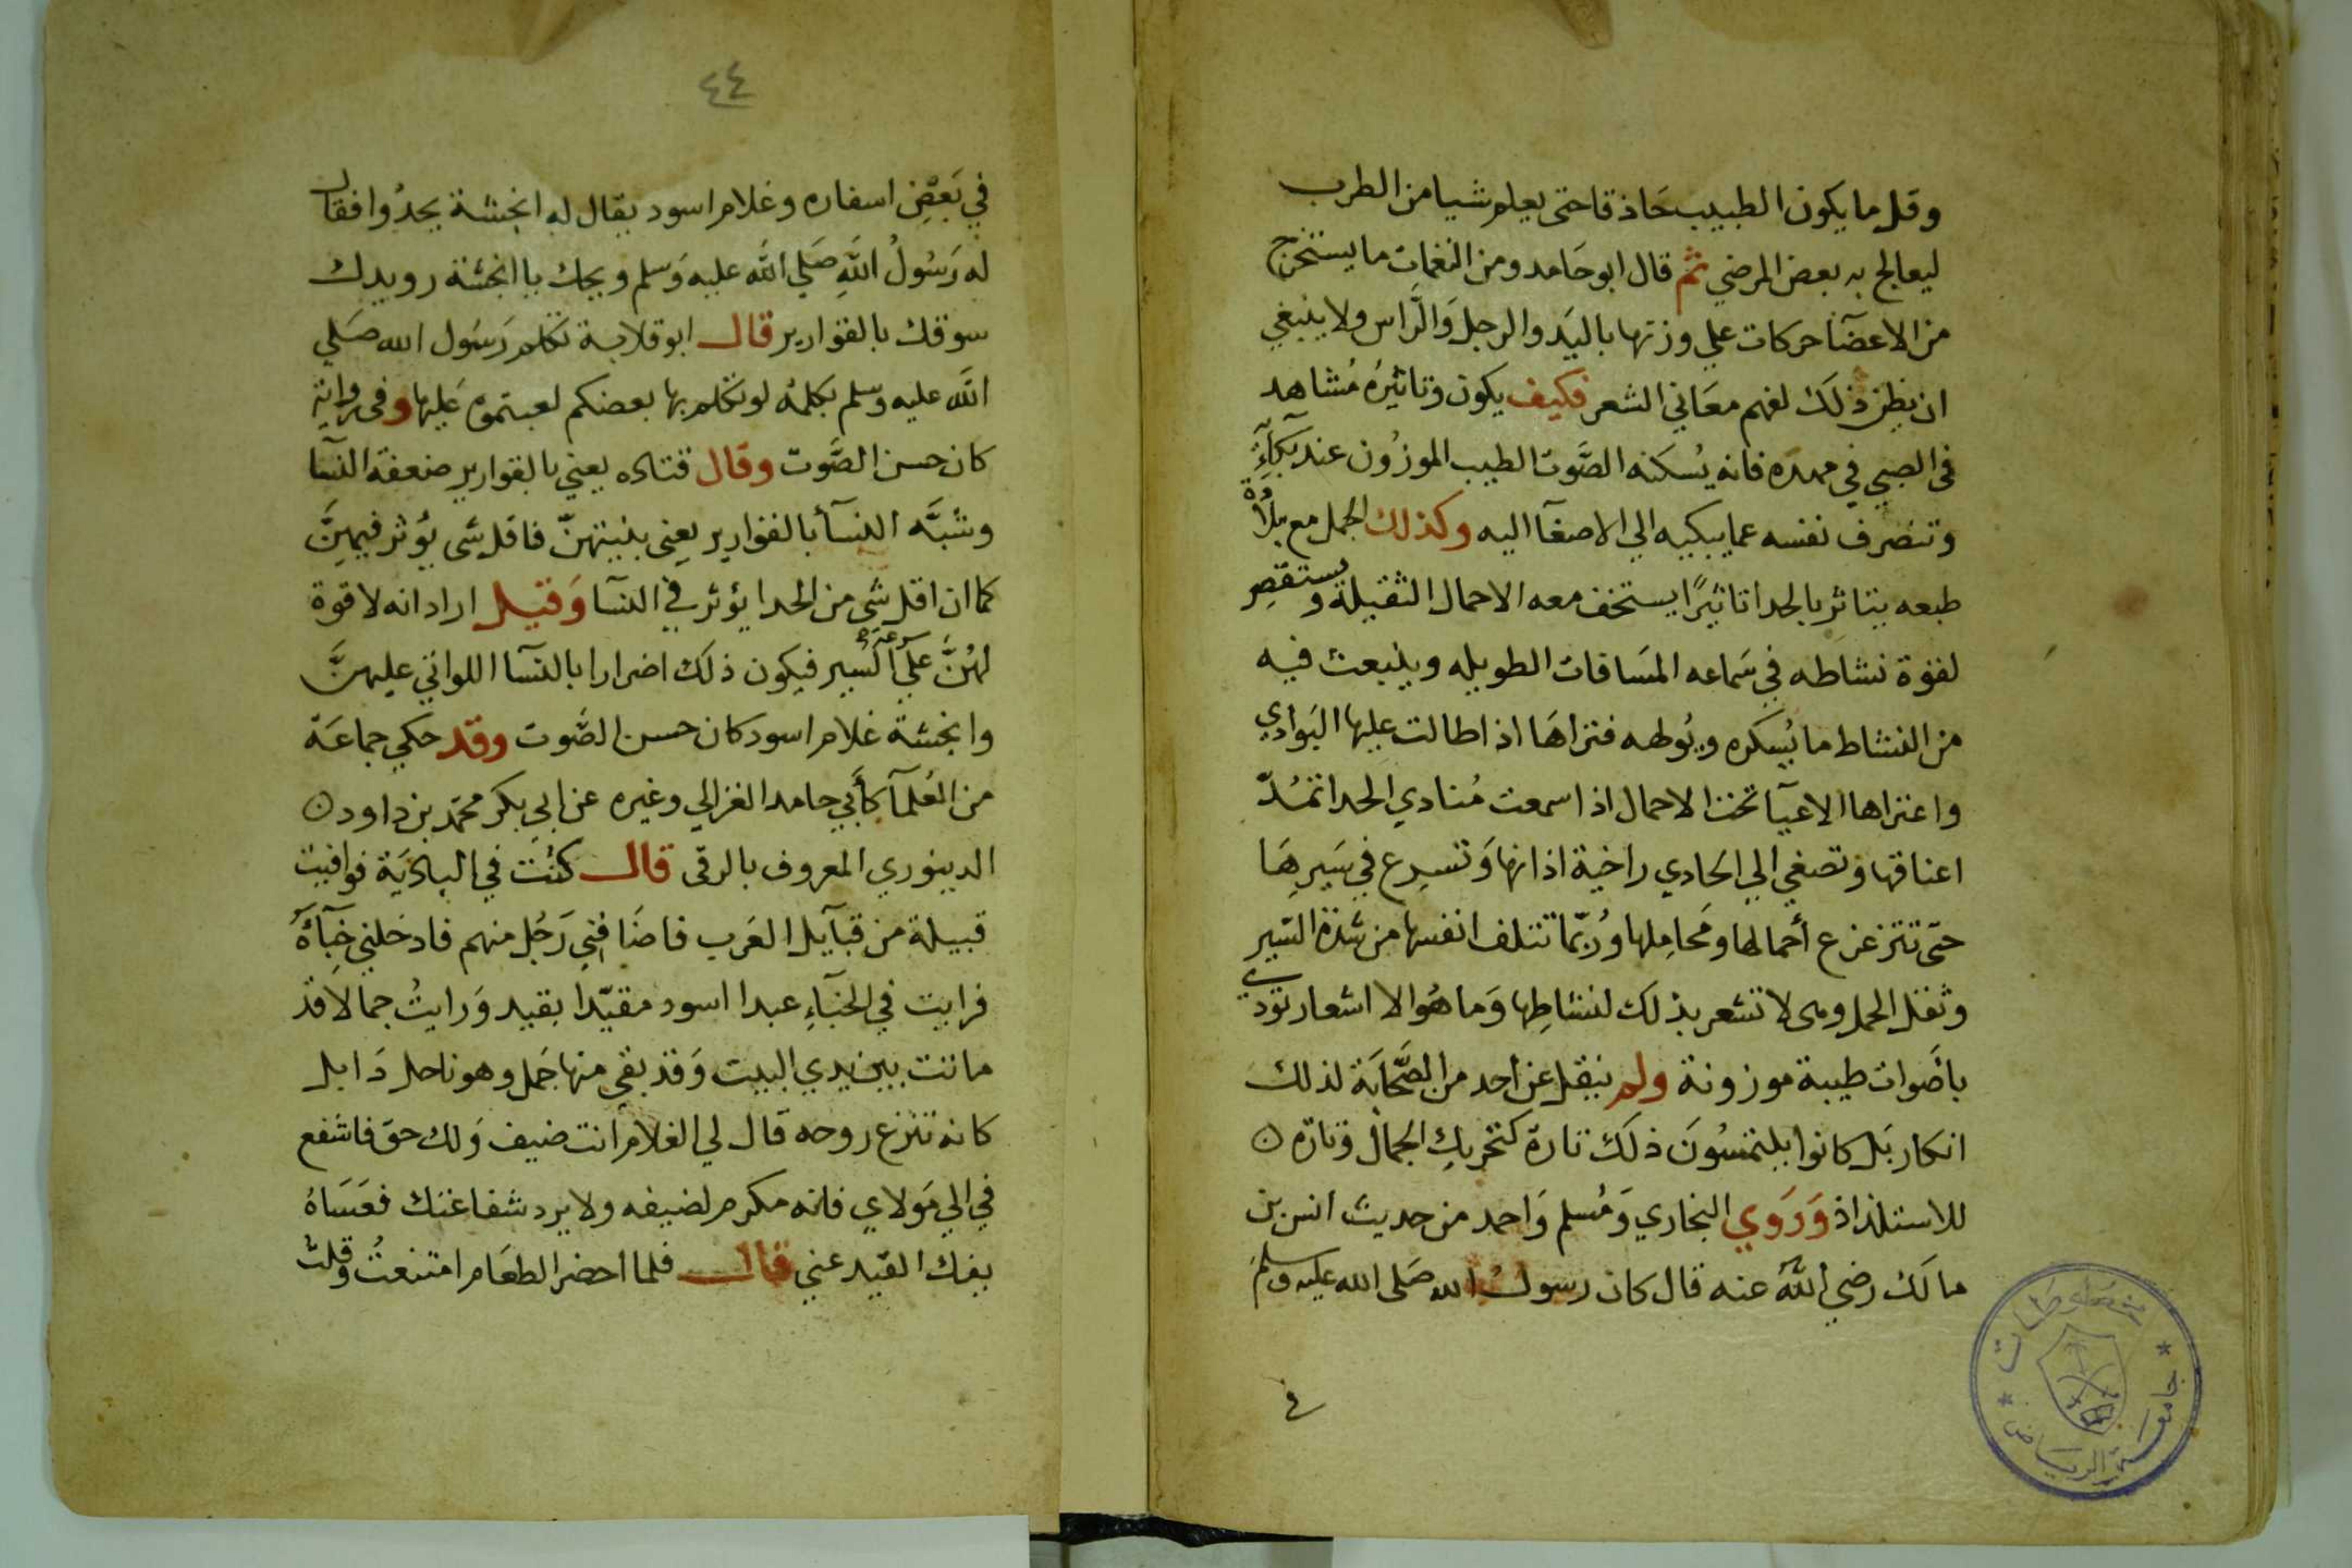 وقل ما يكون الطبيب حَاذقا حتى يعلم شيا من الطرب
ليعالج به بعض المرضي ثم قال ابو حَامد ومن النغمات ما يستخرج
من الاعضآ حركات علي وزنها باليَد والرجل وَالرَّاس ولا ينبغي
ان يظن ذلَك لفهم معَاني الشعر فكيف يكون وتاثيرُه مُشاهد
في الصبي في مهده فانه يُسكنه الصَّوت الطيب الموزُون عند بكآَءِ
وتنصرف نفسه عما يبكيه الي الاصغآ اليه وكذلك الجمل مع بلاُدة
طبعه يتاثر بالحدا تاثيرًا يستخف معه الاحمال الثقيلة ويستقصِر
لقوة نشاطه في سَماعه المسَافات الطويله وينبعث فيه
من النشاط ما يُسكره ويُولهه فتراهَا اذا طالت عليها البَوادي
واعتراها الاعيآ تحت الاحمال اذا سمعت مُنادي الحدا تمُدّ
اعناقها وَتصغي الي الحَادي راخية اذانها وَتسرع في سَيرِهَا
حتى تتزعزع أحمالها ومَحامِلها ورُبّما تتلف انفسها من شدة السَّير
وثقل الحمل وهى لا تشعر بذلَك لنشاطِها وَما هُو الا اشعار تودي
باصَوات طيبة موزونة ولم ينقل عن احد من الصَّحابَة لذلك
انكار بَل كانوا يلتمسُونَ ذلَك تارة كتحريكِ الجَمال وَتارَه
للاستلذاذ وَرَوي البخاري وَمُسلم وَاحمد من حديث انس بن
مالَك رضي اللَّه عنه قال كان رسولُ الله صَلى الله عليه وسلم
في
٤٤
في بَعْضِ اسفاره وغلام اسود يقال له انجشة يحدُوا فقال
له رَسُولُ اللَّهِ صَلي اللَّه عليه وَسلم ويحك يا انجشة رويدك
سوقك بالقوارير قال ابو قلابة تكلم رَسُول الله صَلي
اللَّه عليه وسلم بكلمة لو تكلم بها بعضكم لعبتموه عَليها وفى رواية
كان حسن الصَّوت وقال قتاده يعني بالقوارير ضعفة النسآ
وشبَّه النسآ بالقوارير يعني بنيتهنّ فاقل شى يؤثر فيهِنَّ
كما ان اقل شى من الحدا يؤثر في النسآ وَقيل اراد انه لا قوة
لهُنَّ علي سرعَة السَّير فيكون ذلَك اضرارا بالنسآ اللواتي عليهنَّ
وانجشة غلام اسود كان حسن الصَّوت وقد حكي جماعَة
من العُلمآ كأَبي حامد الغزالي وغيره عن ابي بكر محمَّد بن داود
الدينوري المعروف بالرقى قال كنُت في الباديَة فوافيت
قبيلة من قبآيل العَرب فاضَافني رَجُل منهم فادخلني خِبآءَهُ
فرايت في الخبَآءِ عبدا اسود مقيّدا بقيد وَرايتُ جمالا قد
ماتت بين يدي البيت وَقد بقي منها جَمل وهو ناحل ذَابل
كانه تنزع روحه قال لي الغلام انت ضيف وَلك حق فاشفع
في الي مَولاي فانه مكرم لضيفه ولا يرد شفاعتك فعَسَاهُ
يفك القيد عني قال فلما احضر الطعَام امتنعتُ وقلتُ
مخطوطات
جامعة الرياض